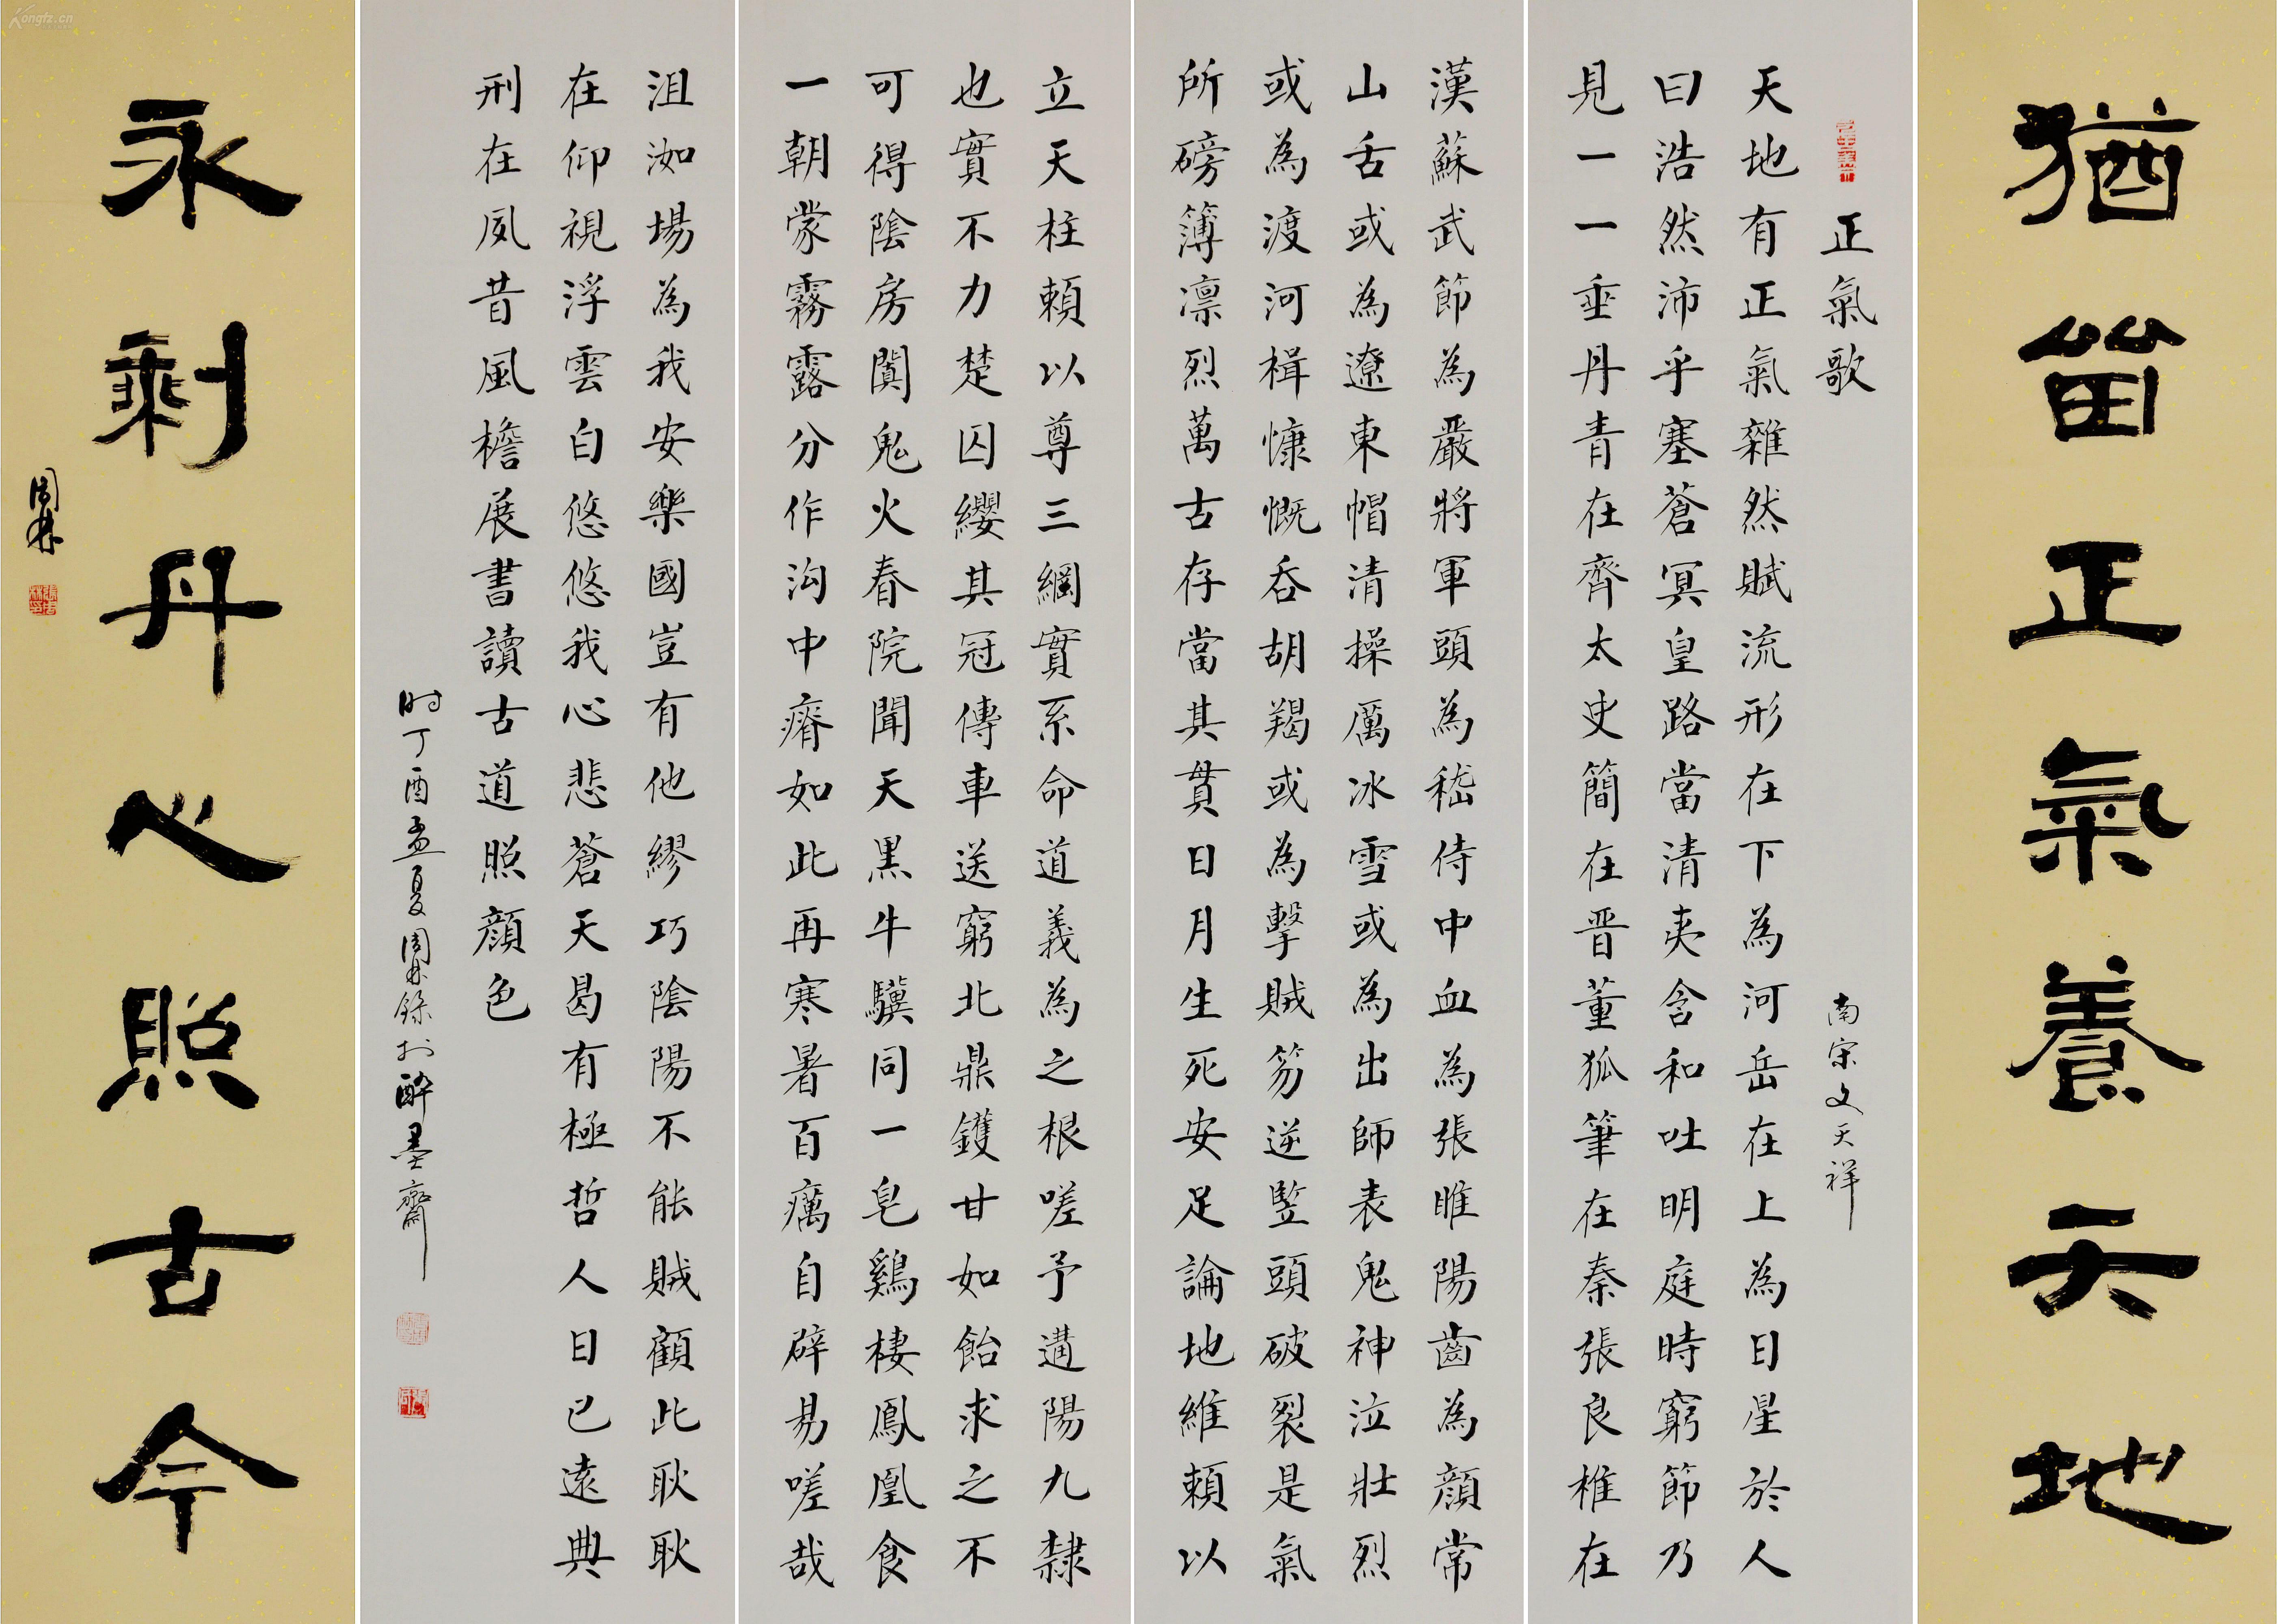 猶留正氣養天地
正氣歌
南宋文天祥
天地有正氣雜然賦流形在下為河岳在上為日星於人
曰浩然沛乎塞蒼冥皇路當清夷含和吐明庭時窮節乃
見一一垂丹青在齊太史簡在晋董狐筆在秦張良椎在
漢蘇武節為嚴將軍頭為嵇侍中血為張睢陽齒為顏常
山舌或為遼東帽清操厲冰雪或為出師表鬼神泣壯烈
或為渡河楫慷慨吞胡羯或為擊賊笏逆豎頭破裂是氣
所磅簿凛烈萬古存當其貫日月生死安足論地維賴以
立天柱賴以尊三綱實系命道義為之根嗟予遘陽九隸
也實不力楚囚纓其冠傳車送窮北鼎鑊甘如飴求之不
可得陰房闃鬼火春院閟天黑牛驥同一皂鷄棲鳳凰食
一朝蒙霧露分作沟中瘠如此再寒暑百癘自辟易嗟哉
沮洳場為我安樂國豈有他繆巧陰陽不能賊顧此耿耿
在仰視浮雲白悠悠我心悲蒼天曷有極哲人日已遠典
刑在夙昔風檐展書讀古道照顏色
时丁酉孟夏周林錄於醉墨齋
永剩丹心照古今
周林
Kongfz.cn